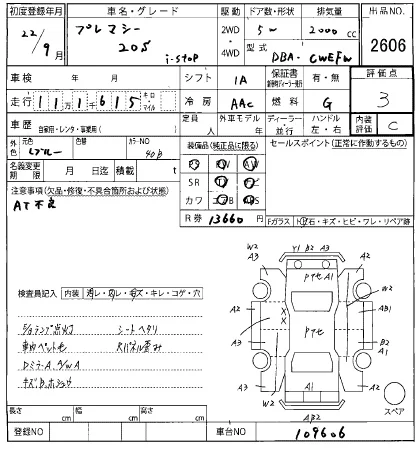 初度登録年月 車名・グレード 駆動 ドア数・形状 排気量 出品NO.
22/9月 プレマシー 20S i-stop 2WD 4WD 5W 2000cc 2606
型式 DBA-CWEFW
車検 年 月 シフト IA 保証書 有・無 評価点
走行 111千615 キロ マイル 冷房 AAC 燃料 G 3
車歴 自家用・レンタ・事業用( ) 定員 人 外車モデル 年 ディーラー・並行 ハンドル 左・右 内装評価 C
外色 元色 ブルー 色替 カラーNO 40B 装備品(純正品に限る) セールスポイント(正常に作動するもの)
名義変更期限 月 日迄 積載 t
SR
カワ
注意事項(欠品・修復・不具合箇所および状態) R券 13660 Fガラス 飛石・キズ・ヒビ・ワレ・リペア跡
AT不良
W2 A3 Y1 B2 A3 A2
PアセA1 W2
検査員記入 内装 汚レ・スレ・キズ・キレ・コゲ・穴
A2 X A2 AB1
A3 X Pアセ
S/Gランプ点灯 シートヘタリ B2 A1
車内ペット毛 Rパネル歪み
DミラーA、A/W A A3 W2 A1 A2
キズB、ホショウ
AB2 スペア
長さ cm 幅 cm 高さ cm
登録NO 車台NO 109606